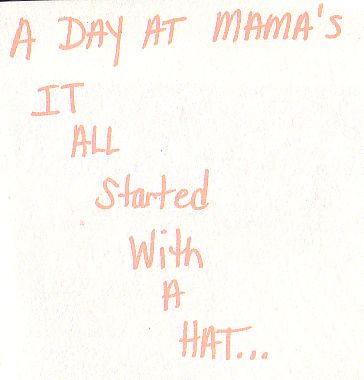 A DAY AT MAMA'S
IT
ALL
Started
With
A
HAT...